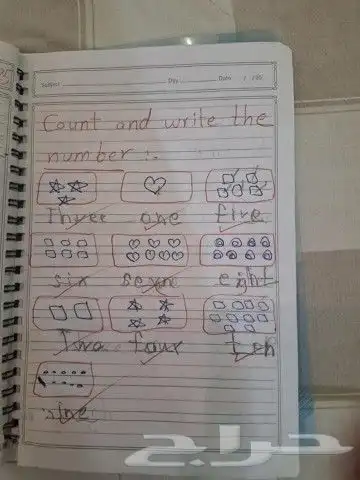 Subject Day Date / /20
Count and write the
number :-
Three one five
six seven eight
Two four ten
nine
حراج